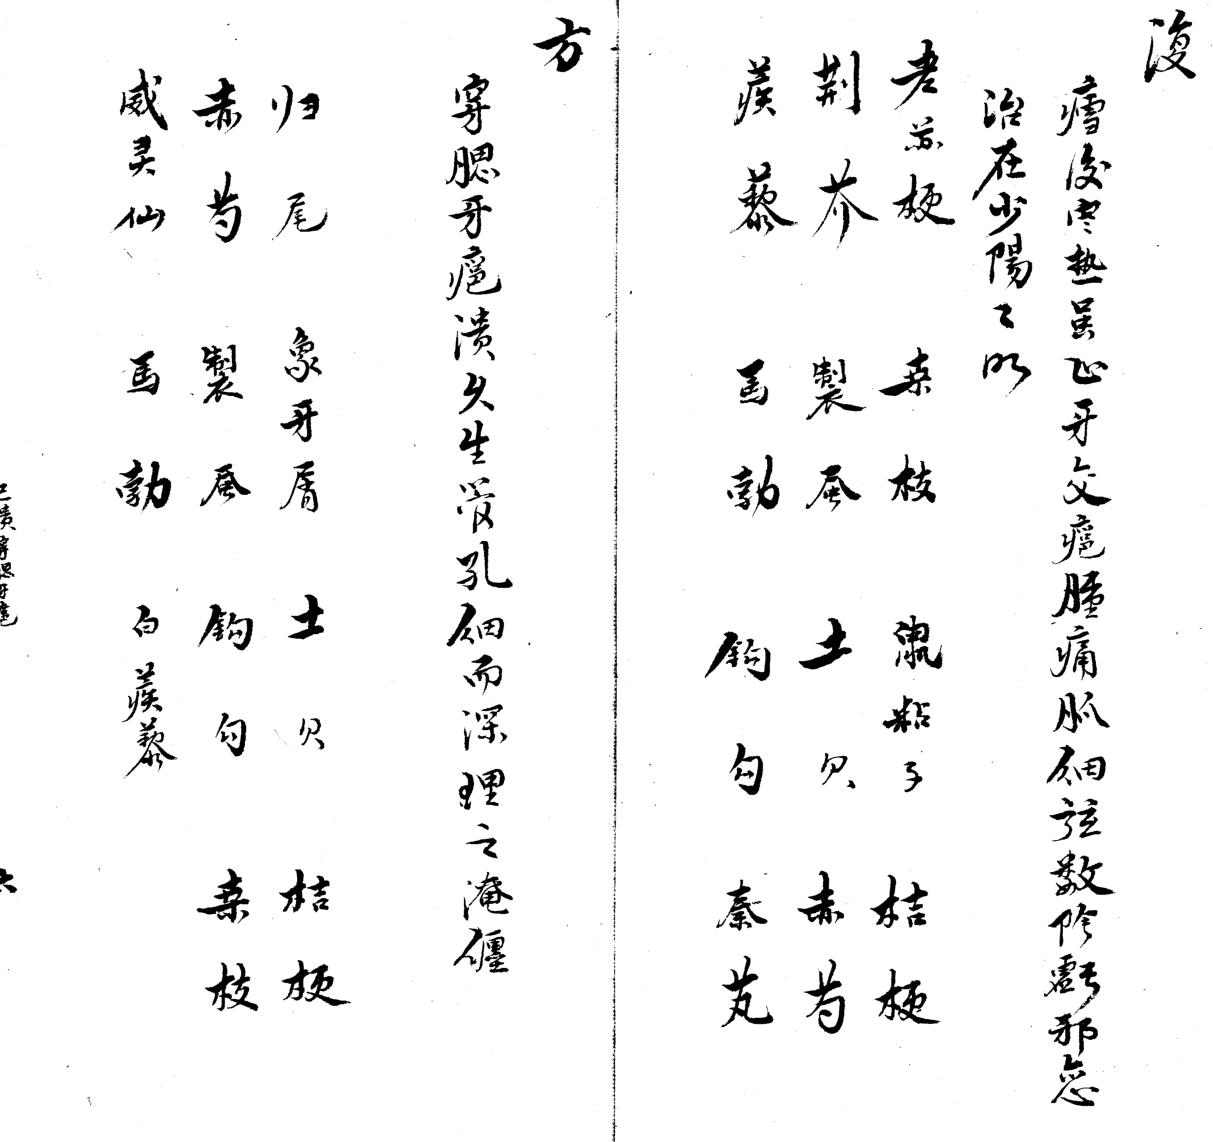 復
瘧後寒热虽止牙交癰腫痛脈細弦數陰虧邪戀
治在少陽々明
老苏梗 桑枝 鼠粘子 桔梗
荆芥 製蚕 土贝 赤芍
蒺藜 馬勃 鈎勾 秦艽
方
穿腮牙癰潰久生管孔細而深理之淹纏
归尾 象牙屑 土贝 桔梗
赤芍 製蚕 鈎勾 桑枝
威灵仙 馬勃 白蒺藜
已潰穿腮牙癰
六